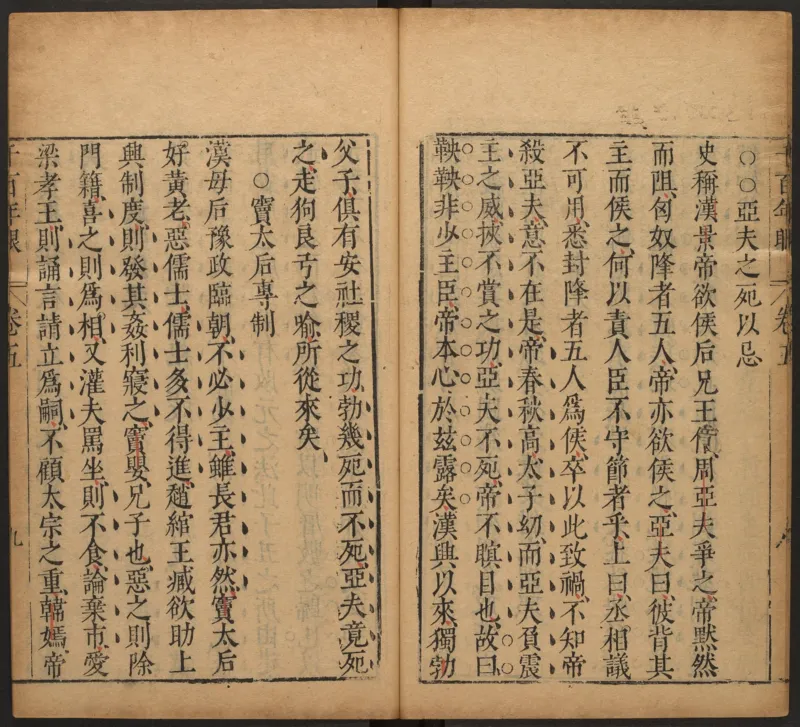 千百年眼 卷五
亞夫之死以忌
史稱漢景帝欲侯后兄王信周亞夫爭之帝默然
而阻匈奴降者五人帝亦欲侯之亞夫曰彼背其
主而侯之何以責人臣不守節者乎上曰丞相議
不可用悉封降者五人爲侯卒以此致禍不知帝
殺亞夫意不在是帝春秋高太子幼而亞夫負震
主之威挾不賞之功亞夫不死帝不瞑目也故曰
鞅鞅非少主臣帝本心於兹露矣漢興以來獨勃
父子俱有安社稷之功勃幾死而不死亞夫竟死
之走狗良弓之喻所從來矣
竇太后專制
漢母后豫政臨朝不必少主雖長君亦然竇太后
好黃老惡儒士儒士多不得進趙綰王臧欲助上
興制度則發其姦利寢之竇嬰兄子也惡之則除
門籍喜之則爲相又灌夫罵坐則不食論棄市愛
梁孝王則誦言請立爲嗣不顧太宗之重韓嫣帝
千百年眼 卷五 九